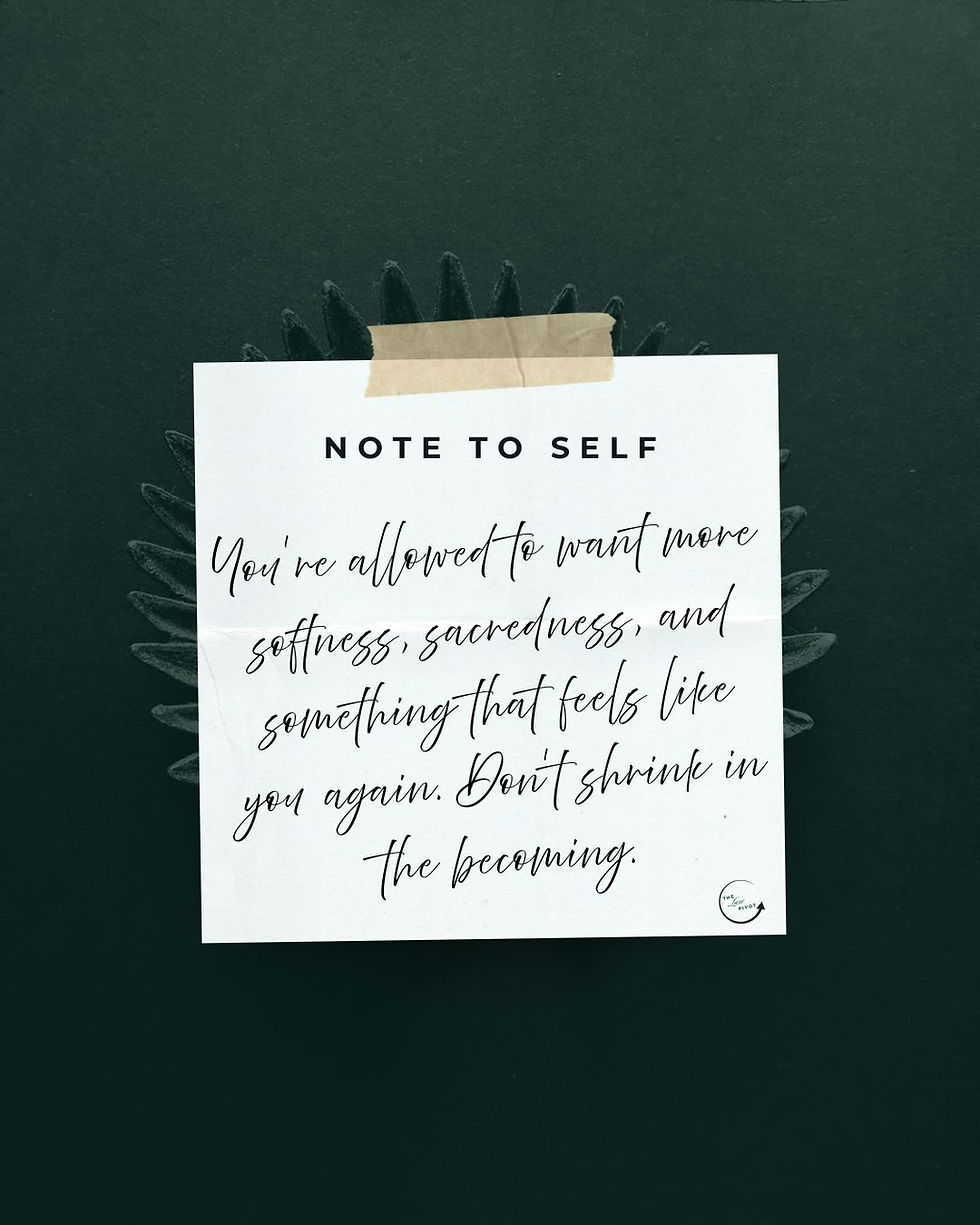 NOTE TO SELF
You're allowed to want more
softness, sacredness, and
something that feels like
you again. Don't shrink in
the becoming.
THE
Law
PIVOT